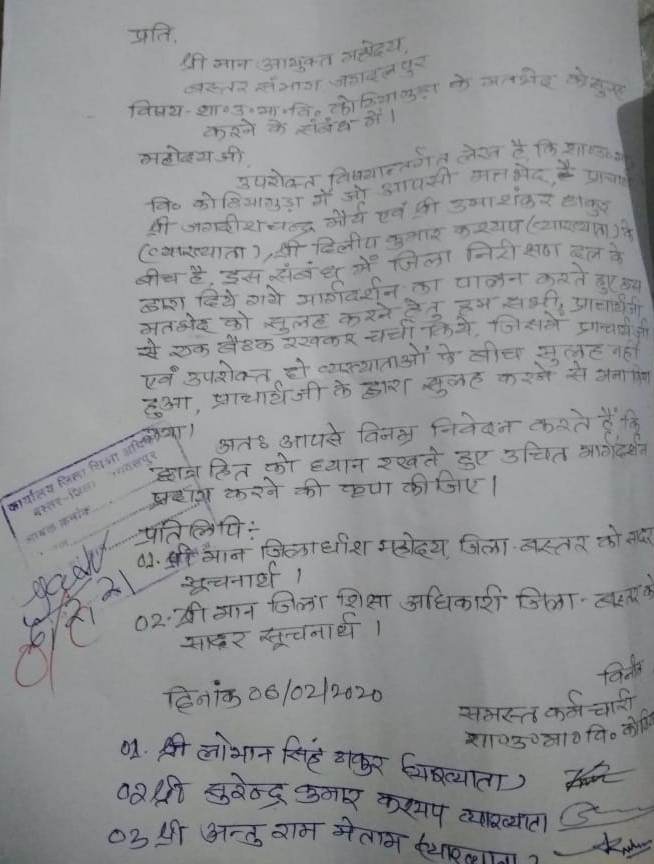 प्रति,
श्री मान आयुक्त महोदय,
बस्तर संभाग जगदलपुर
विषय - शा०उ०मा०वि० कोडियागुड़ा के मतभेद को सुलह
करने के संबंध में ।
महोदय जी,
उपरोक्त विषयान्तर्गत लेख है, कि शा०उ०मा०
वि० कोडियागुड़ा में जो आपसी मतभेद है, प्राचार्य
श्री जगदीशचन्द्र मौर्य एवं श्री उमाशंकर ठाकुर
(व्याख्याता), श्री दिलीप कुमार कश्यप (व्याख्याता) के
बीच है, इस संबंध में जिला निरीक्षण दल के
द्वारा दिये गये मार्गदर्शन का पालन करते हुए
मतभेद को सुलह करने हेतु हम सभी, प्राचार्य जी
से एक बैठक रखकर चर्चा किये, जिसमें प्राचार्य जी
एवं उपरोक्त दो व्याख्याताओं के बीच सुलह नहीं
हुआ, प्राचार्य जी के द्वारा सुलह करने से मना किया
गया।
अतः आपसे विनम्र निवेदन करते हैं कि
छात्र हित को ध्यान रखते हुए उचित मार्गदर्शन
प्रदान करने की कृपा कीजिए ।
कार्यालय जिला शिक्षा अधिकारी
बस्तर-जिला जगदलपुर
आवक क्रमांक
प्रतिलिपि :-
01. श्री मान जिलाधीश महोदय, जिला-बस्तर को सादर
सूचनार्थ ।
02. श्री मान जिला शिक्षा अधिकारी जिला- बस्तर को
सादर सूचनार्थ ।
दिनांक 06/02/2020
विनीत
समस्त कर्मचारी
शा०उ०मा०वि०
01. श्री लोभान सिंह ठाकुर (व्याख्याता)
02 श्री सुरेन्द्र कुमार कश्यप व्याख्याता
03 श्री अन्तु राम मेताम व्याख्याता